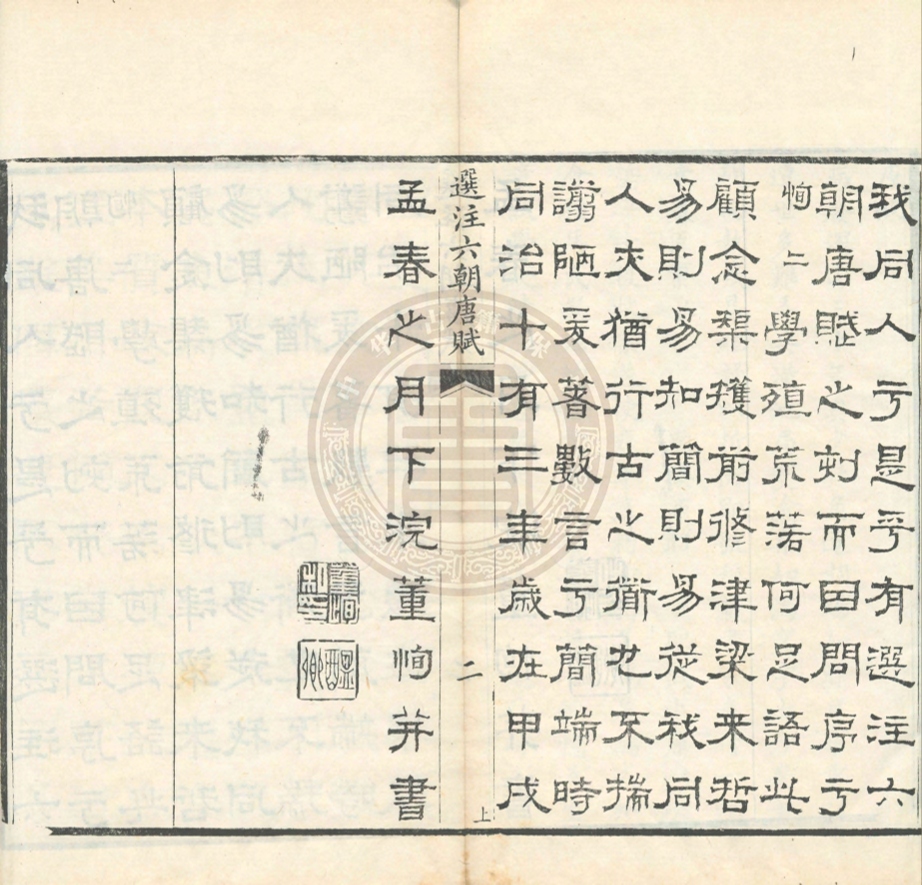 我同人亏是乎有選注六
朝唐賦之刻而因問序亏
恂上學殖荒落何足語此
顧念榘擭前修津梁来哲
易則易知簡則易從我同
人夾猶行古之衟也不揣
譾陋爰著數言亏簡端時
同治十有三年歲在甲戌
選注六朝唐賦
二
上
孟春之月下浣董恂并書
醖卿